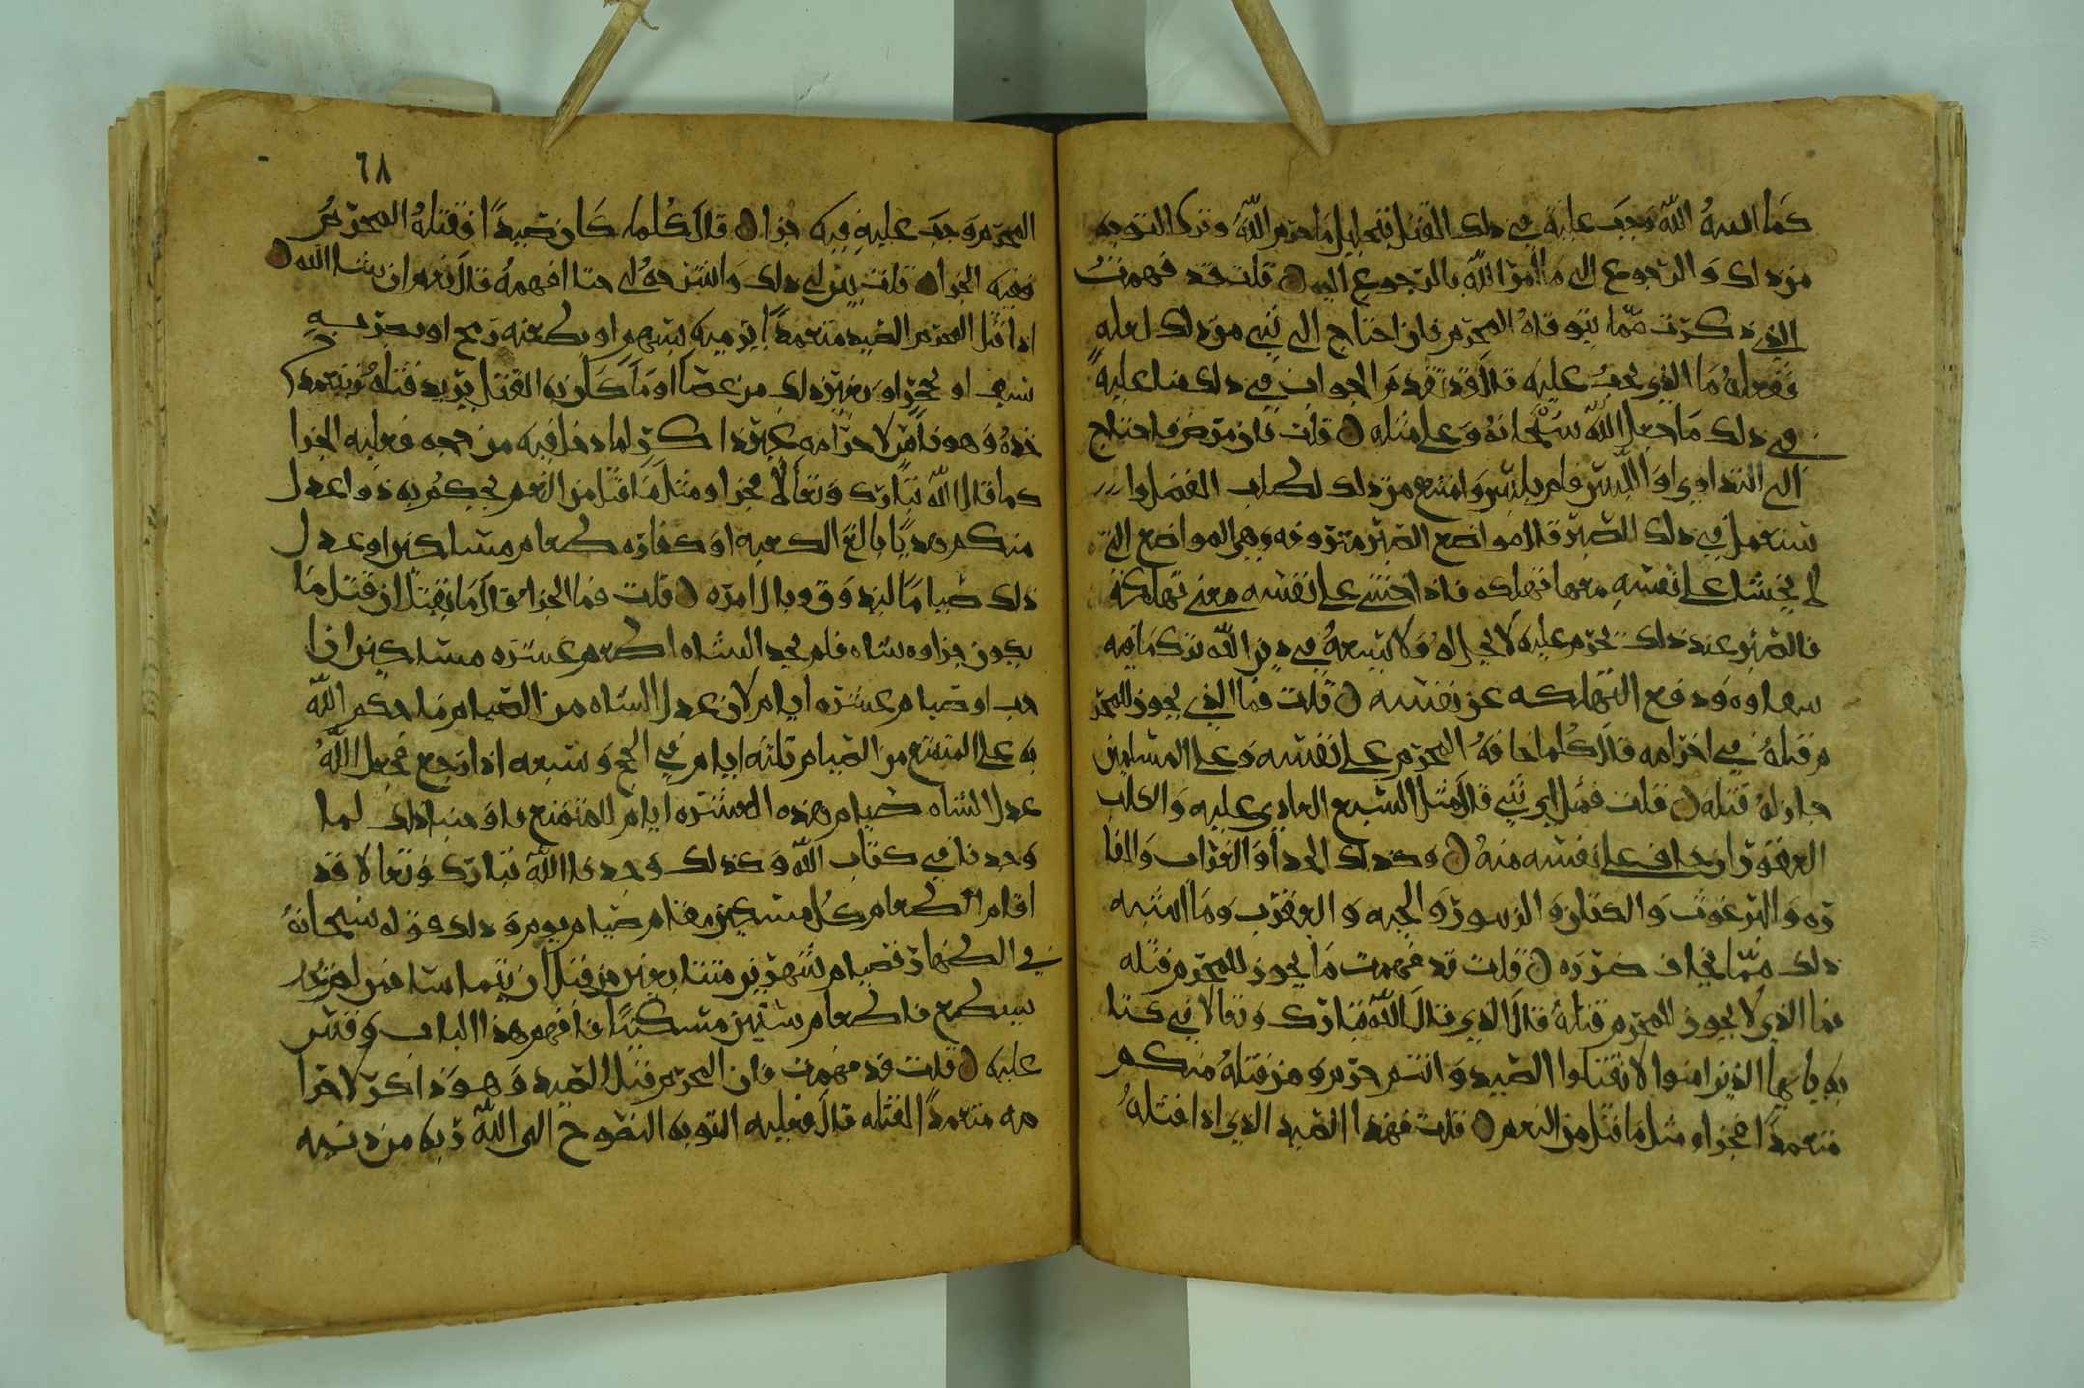 كما السه الله وجب عليه في ذلك القتل فتحليل ما حرم الله وترك التوبه
من ذلك والرجوع الى ما امر الله بالرجوع اليه قلت قد فهمت
الذي ذكرت مما يتوقاه المحرم فان احتاج الى شي من ذلك لعله
ففعله ما الذي يجب عليه قال قد تقدم الجواب في ذلك
في ذلك ما جعل الله سبحانه وعلى مثله قلت فان مرض فاحتاج
الى التداوي او اللبس فلم يلبس وامتنع من ذلك لطلب الفضل او
يستعمل في ذلك الصبر قال مواضع الصبر معروفه وهي المواضع التي
لا يخشا على نفسه معها تهلكه فاذا خشي على نفسه معنى تهلكة
فالصبر عند ذلك يحرم عليه لا يحل له ولا يسعه في دين الله ترك ما فيه
ودفع التهلكه عن نفسه قلت فما الذي يجوز للمحر
م قتله في احرامه قال كلما خافه المحرم على نفسه وعلى المسلمين
جاز له قتله قلت فمثل اي شي قال مثل السبع العادي عليه والكلب
العقور ان خاف على نفسه منه وكذلك الحدا والغراب والفا
ره والبرغوث والكتان والزنبور والحيه والعقرب وما اشبه
ذلك مما يخاف ضرره قلت قد فهمت ما يجوز للمحرم قتله
فما الذي لا يجوز للمحرم قتله قال الذي قال الله تبارك وتعالا في كتا
به يا يها الذين امنوا لا تقتلوا الصيد وانتم حرم ومن قتله منكم
متعمدا فجزاو مثل ما قتل من النعم قلت فهذا الصيد الذي اذا قتله
٦٨
المحرم وجب عليه فيه جزا قال كلما كان صيدا فقتله المحرم
ففيه الجزا قلت بين لي ذلك واشرحه لي حتا افهمه قال نعم ان شا الله
اذا قتل المحرم الصيد متعمدا يرميه بسهم او يطعنه برمح او يضربه
بسيف او بحجر او بغير ذلك من عصا او ما كان به القتل يريد قتله ويتعمد
خده وهو ناس لاحرامه غير ذاكر لما دخل فيه من حجه فعليه الجزا
كما قال الله تبارك وتعالا فجزاو مثل ما قتل من النعم يحكم به ذوا عدل
منكم هديا بالغ الكعبه او كفاره طعام مساكين او عدل
ذلك صياما ليذوق وبال امره قلت فما الجزا قال ما يقتل ان قتل ما
يكون جزاوه شاه فلم يجد الشاه اطعم عشره مساكين ان ا
حب او صيام عشره ايام لان عدل الشاه من الصيام ما حكم الله
به على المتمتع من الصيام ثلثه ايام في الحج وسبعه اذا رجع فجعل الله
عدل الشاه صيام هذه العشره ايام للمتمتع ذلك لما
وجدنا في كتاب الله وكذلك وجدنا الله تبارك وتعالا قد
اقام اطعام كل مسكين مقام صيام يوم وذلك قوله سبحانه
في الظهار فصيام شهرين متتابعين من قبل ان يتماسا فمن لم
يستطع فاطعام ستين مسكينا فافهم هذا الباب وقس
عليه قلت قد فهمت فان المحرم قتل الصيد وهو ذاكر لاحرا
مه متعمدا لقتله قال فعليه التوبه النصوح الى الله ربه من ذنبه